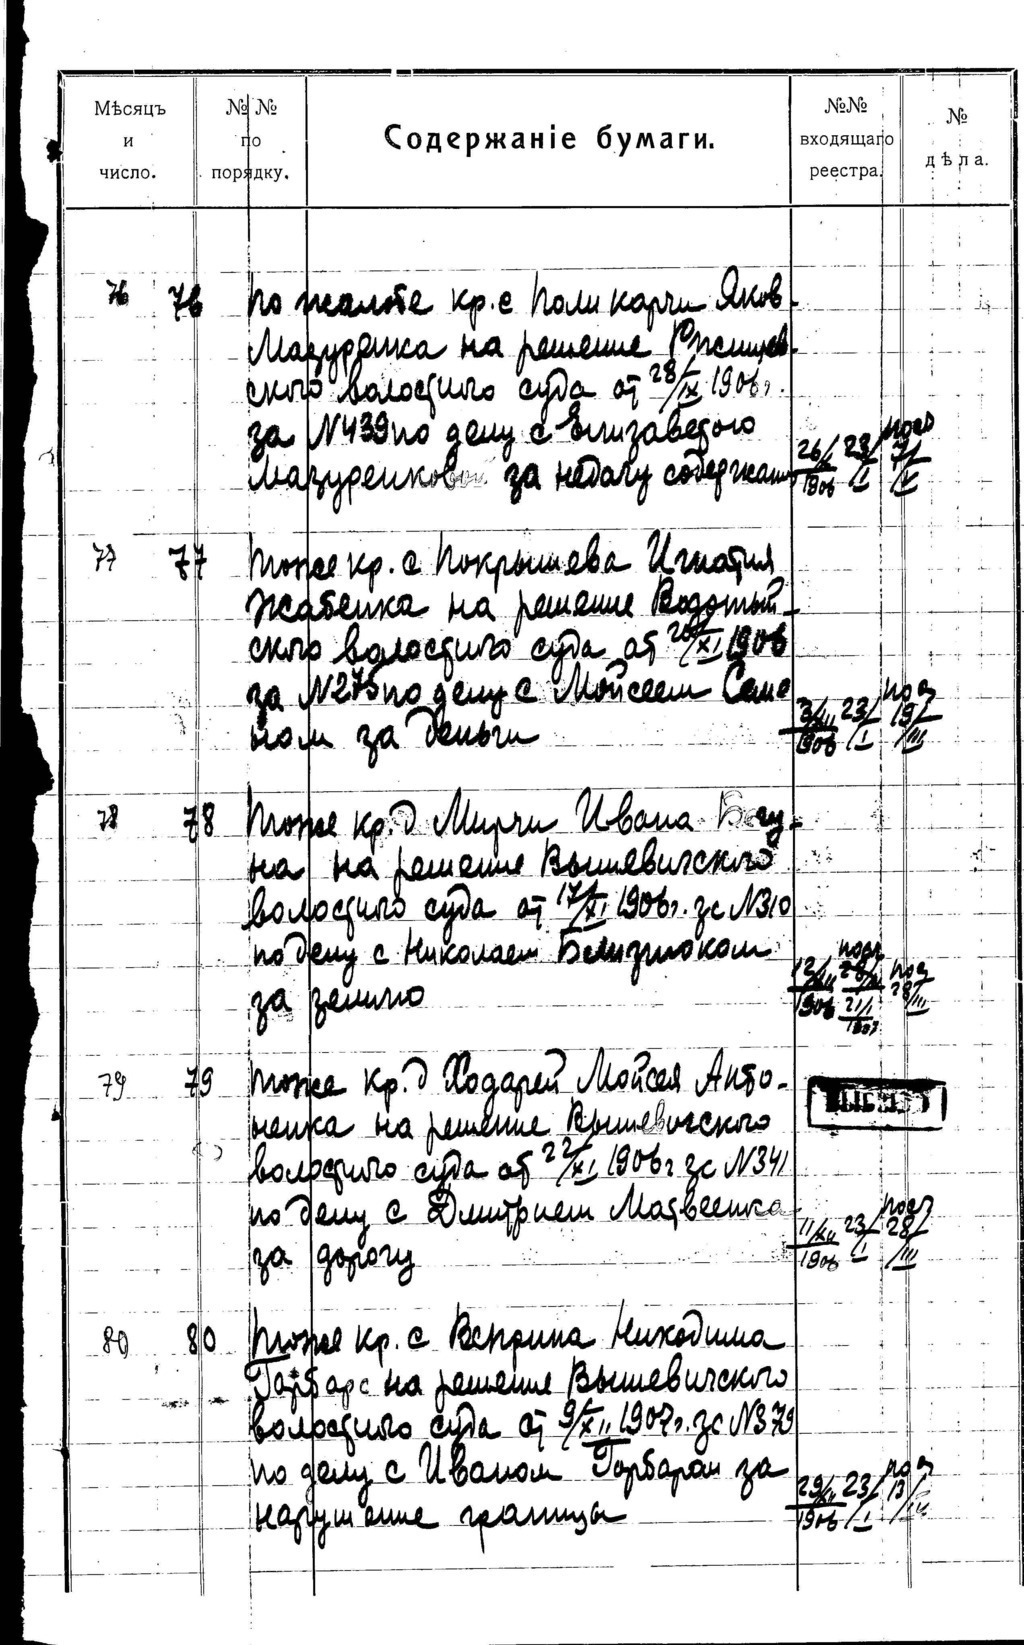 Мѣсяцъ и число.
№№ по порядку.
Содержаніе бумаги.
№№ входящаго реестра.
№ дѣла.
76 76 по жалобе кр. с Поликарчи Яков-
Мазуренка на решение
ского волостного суда от 28/IX 1906 г.
за N439 по делу с Елизаветою
Мазуренковой за недачу содержания
26/X 1906 23/I 7/V
77 77 тоже кр. с Покрышева Игнатия
Жабенка на решение Водотый-
ского волостного суда от 20/XI 1906
за N275 по делу с Мойсеем
за деньги
3/XII 1906 23/I 19/III
78 78 тоже кр. д Мирчи Ивана Богу-
на на решение Вышевичского
волостного суда от 17/XI 1906 г. за N310
по делу с Николаем Близнюком
за землю
12/XII 1906 21/I 1907 28/III
79 79 тоже кр. д Ходарей Мойсея Анто-
ненка на решение Вышевичского
волостного суда от 22/XI 1906 г за N341
по делу с Дмитрием Матвеенка
за дорогу
11/XII 1906 23/I 28/III
80 80 тоже кр. с Веприна Никодима
Гарбара на решение Вышевичского
волостного суда от 9/XII 1907 г. за N379
по делу с Иваном Гарбаром за
нарушение границы
29/XII 1906 23/I 13/